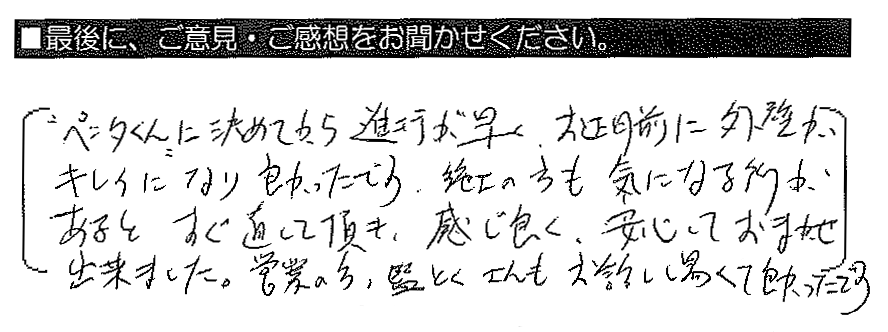 ■最後に、ご意見・ご感想をお聞かせください。
ペンタくんに決めてから進行が早く、お正月前に外壁が
キレイになり良かったです。施工の方も気になる所が
あると すぐ直して頂き、感じ良く、安心しておまかせ
出来ました。営業の方、監とくさんもお話しし易くて良かったです